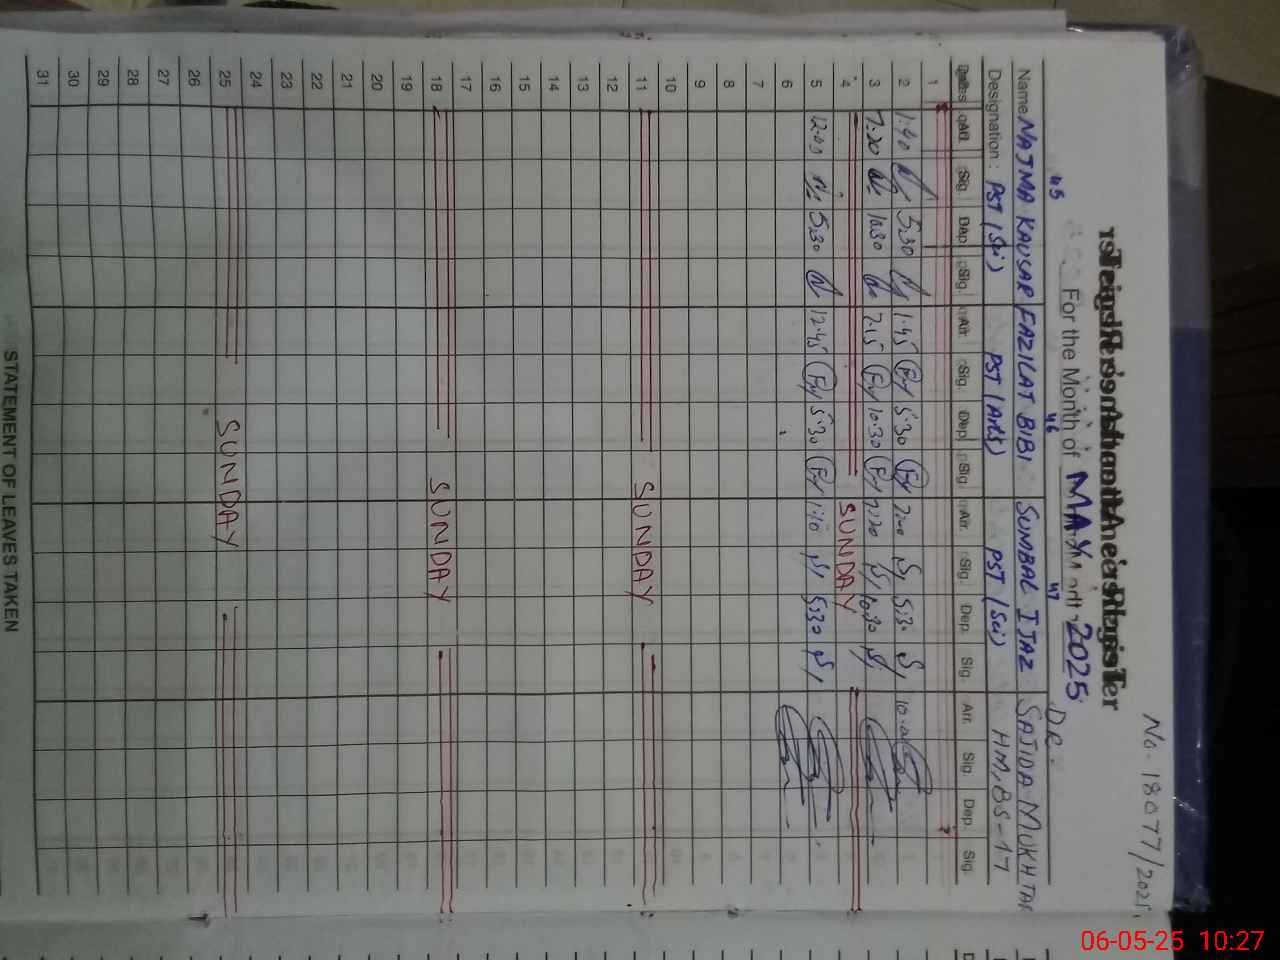 No. 18077/2025.
For the Month of MAY 2025
45 46 47 DR.
Name NAJMA KAUSAR FAZILAT BIBI SUMBAL IJAZ SAJIDA MUKHTAR
Designation: PST (Sci) PST (Arts) PST (Sci) HM, BS-17
Dates Arr. Sig. Dep. Sig. Arr. Sig. Dep. Sig. Arr. Sig. Dep. Sig. Arr. Sig. Dep. Sig.
1
2 1:40 5:30 1:45 5:30 2:00 5:30
3 7:20 10:30 7:15 10:30 7:20 10:30
4 SUNDAY
5 12:40 5:30 12:45 5:30 1:10 5:30
6
7
8
9
10
11 SUNDAY
12
13
14
15
16
17
18 SUNDAY
19
20
21
22
23
24
25 SUNDAY
26
27
28
29
30
31
STATEMENT OF LEAVES TAKEN
06-05-25 10:27